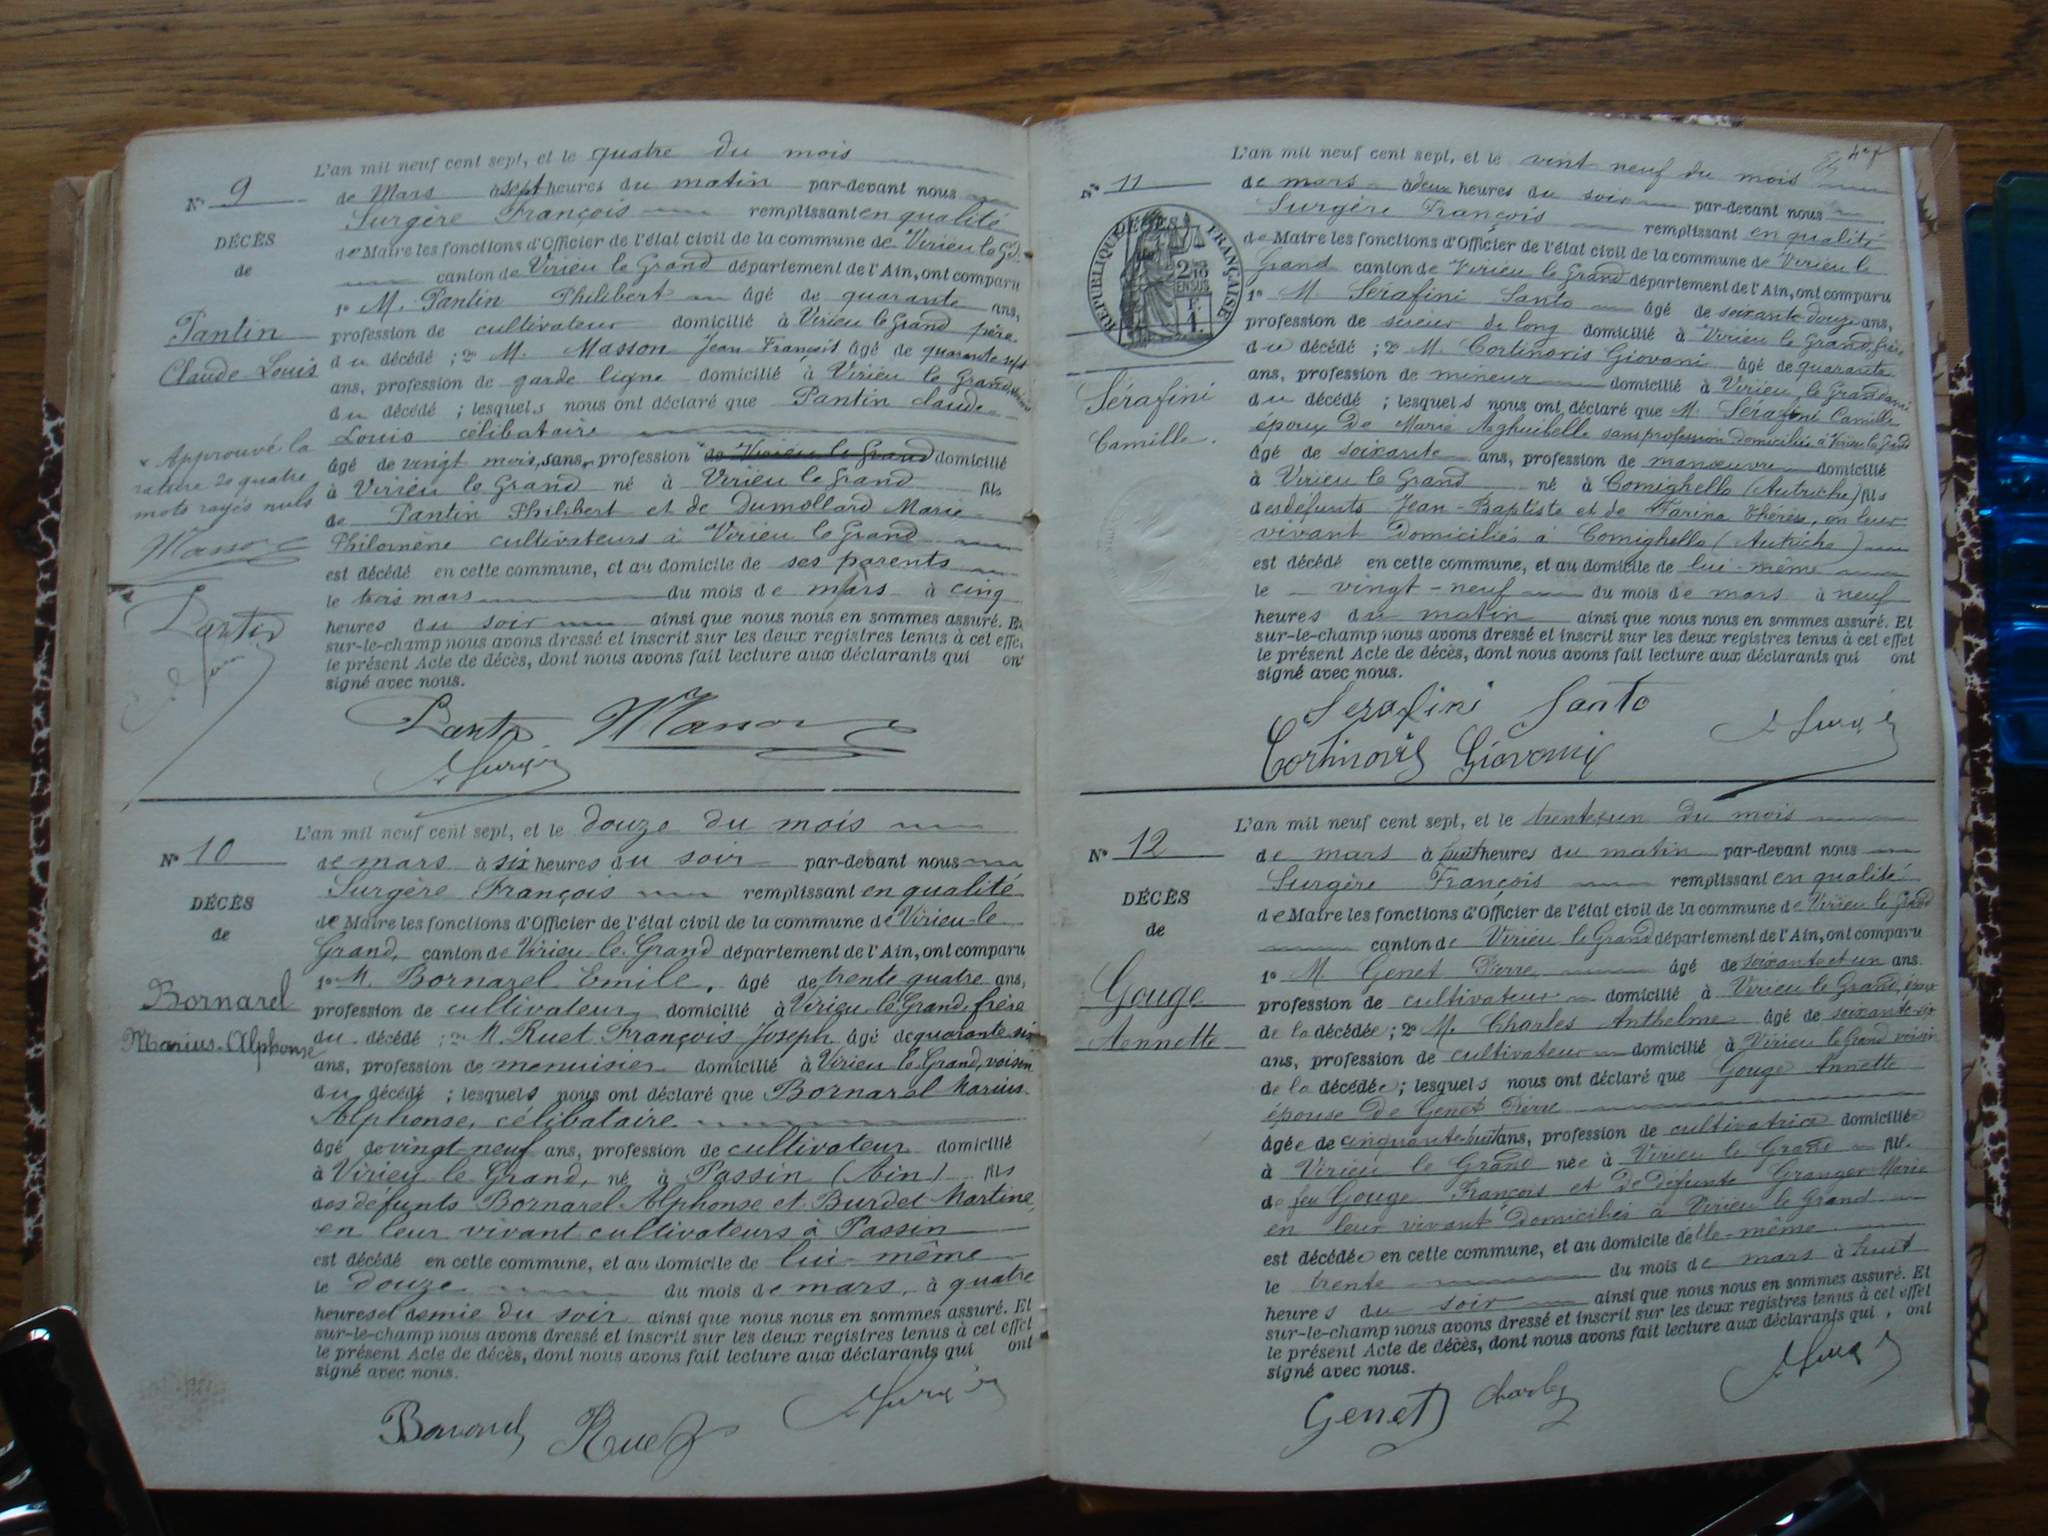 L'an mil neuf cent sept, et le quatre du mois
N° 9
de Mars à sept heures du matin par-devant nous
Surgère François remplissant en qualité
DÉCÈS
de Maire les fonctions d'Officier de l'état civil de la commune de Virieu le Gd
de
canton de Virieu le Grand département de l'Ain, ont comparu
1° M. Pantin Philibert âgé de quarante ans,
Pantin
profession de cultivateur domicilié à Virieu le Grand père
Claude Louis
du décédé ; 2° M. Masson Jean-François âgé de quarante sept
ans, profession de garde ligne domicilié à Virieu le Grand, voisin
du décédé ; lesquels nous ont déclaré que Pantin claude
Louis célibataire
âgé de vingt mois, sans profession de Virieu le Grand domicilié
à Virieu le Grand né à Virieu le Grand fils
de Pantin Philibert et de Dumollard Marie
Philomène cultivateurs à Virieu le Grand
est décédé en cette commune, et au domicile de ses parents
le trois mars du mois de mars à cinq
heures du soir ainsi que nous nous en sommes assuré. Et
sur-le-champ nous avons dressé et inscrit sur les deux registres tenus à cet effet
le présent Acte de décès, dont nous avons fait lecture aux déclarants qui ont
signé avec nous.
Approuvé la
rature de quatre
mots rayés nuls
Masson
Pantin
Pantin Masson
Surgère
L'an mil neuf cent sept, et le douze du mois
N° 10
de mars à six heures du soir par-devant nous
Surgère François remplissant en qualité
DÉCÈS
de Maire les fonctions d'Officier de l'état civil de la commune de Virieu-le
de
Grand, canton de Virieu le Grand département de l'Ain, ont comparu
1° M. Bornarel Emile, âgé de trente quatre ans,
Bornarel
profession de cultivateur domicilié à Virieu le Grand, frère
Marius-Alphonse
du décédé ; 2° M. Ruet François Joseph âgé de quarante six
ans, profession de menuisier domicilié à Virieu le Grand, voisin
du décédé ; lesquels nous ont déclaré que Bornarel Marius
Alphonse, célibataire
âgé de vingt-neuf ans, profession de cultivateur domicilié
à Virieu le Grand, né à Passin (Ain) fils
des défunts Bornarel Alphonse et Burdet Martine,
en leur vivant cultivateurs à Passin
est décédé en cette commune, et au domicile de lui-même
le douze du mois de mars, à quatre
heures et demie du soir ainsi que nous nous en sommes assuré. Et
sur-le-champ nous avons dressé et inscrit sur les deux registres tenus à cet effet
le présent Acte de décès, dont nous avons fait lecture aux déclarants qui ont
signé avec nous.
Bornarel Ruet Surgère
L'an mil neuf cent sept, et le vint neuf du mois
N° 11
de mars à deux heures du soir par-devant nous
Surgère François remplissant en qualité
RÉPUBLIQUE FRANÇAISE
2 10 EN SUS
de Maire les fonctions d'Officier de l'état civil de la commune de Virieu le
Grand canton de Virieu le Grand département de l'Ain, ont comparu
1° M. Sérafini Santo âgé de soixante douze ans,
profession de scieur de long domicilié à Virieu le Grand, frère
du décédé ; 2° M. Cortinovis Giovani âgé de quarante
ans, profession de mineur domicilié à Virieu le Grand ami
Sérafini
Camille.
du décédé ; lesquels nous ont déclaré que M. Serafini Camille
époux de Marie sans profession domiciliée à Virieu le Grand
âgé de soixante ans, profession de manœuvre domicilié
à Virieu le Grand né à Comighello (Autriche) fils
des défunts Jean-Baptiste et de Farina Thérèse, en leur
vivant domiciliés à Comighello (Autriche)
est décédé en cette commune, et au domicile de lui-même
le vingt-neuf du mois de mars à neuf
heures du matin ainsi que nous nous en sommes assuré. Et
sur-le-champ nous avons dressé et inscrit sur les deux registres tenus à cet effet
le présent Acte de décès, dont nous avons fait lecture aux déclarants qui ont
signé avec nous.
Serafini Santo
Cortinovis Giovani Surgère
L'an mil neuf cent sept, et le trente un du mois
N° 12
de mars à huit heures du matin par-devant nous
Surgère François remplissant en qualité
DÉCÈS
de Maire les fonctions d'Officier de l'état civil de la commune de Virieu le Grand
de
canton de Virieu le Grand département de l'Ain, ont comparu
1° M. Genet Pierre âgé de soixante et un ans.
Gouge
profession de cultivateur domicilié à Virieu le Grand, époux
Annette
de la décédée ; 2° M. Charles Anthelme âgé de soixante-six
ans, profession de cultivateur domicilié à Virieu le Grand voisin
de la décédée ; lesquels nous ont déclaré que Gouge Annette
épouse de Genet Pierre
âgée de cinquante-huit ans, profession de cultivatrice domiciliée
à Virieu le Grand née à Virieu le Grand fil.
de feu Gouge François et de défunte Granger Marie
en leur vivant domiciliés à Virieu le Grand
est décédée en cette commune, et au domicile d'elle-même
le trente du mois de mars à huit
heures du soir ainsi que nous nous en sommes assuré. Et
sur-le-champ nous avons dressé et inscrit sur les deux registres tenus à cet effet
le présent Acte de décès, dont nous avons fait lecture aux déclarants qui ont
signé avec nous.
Genet Charles Surgère